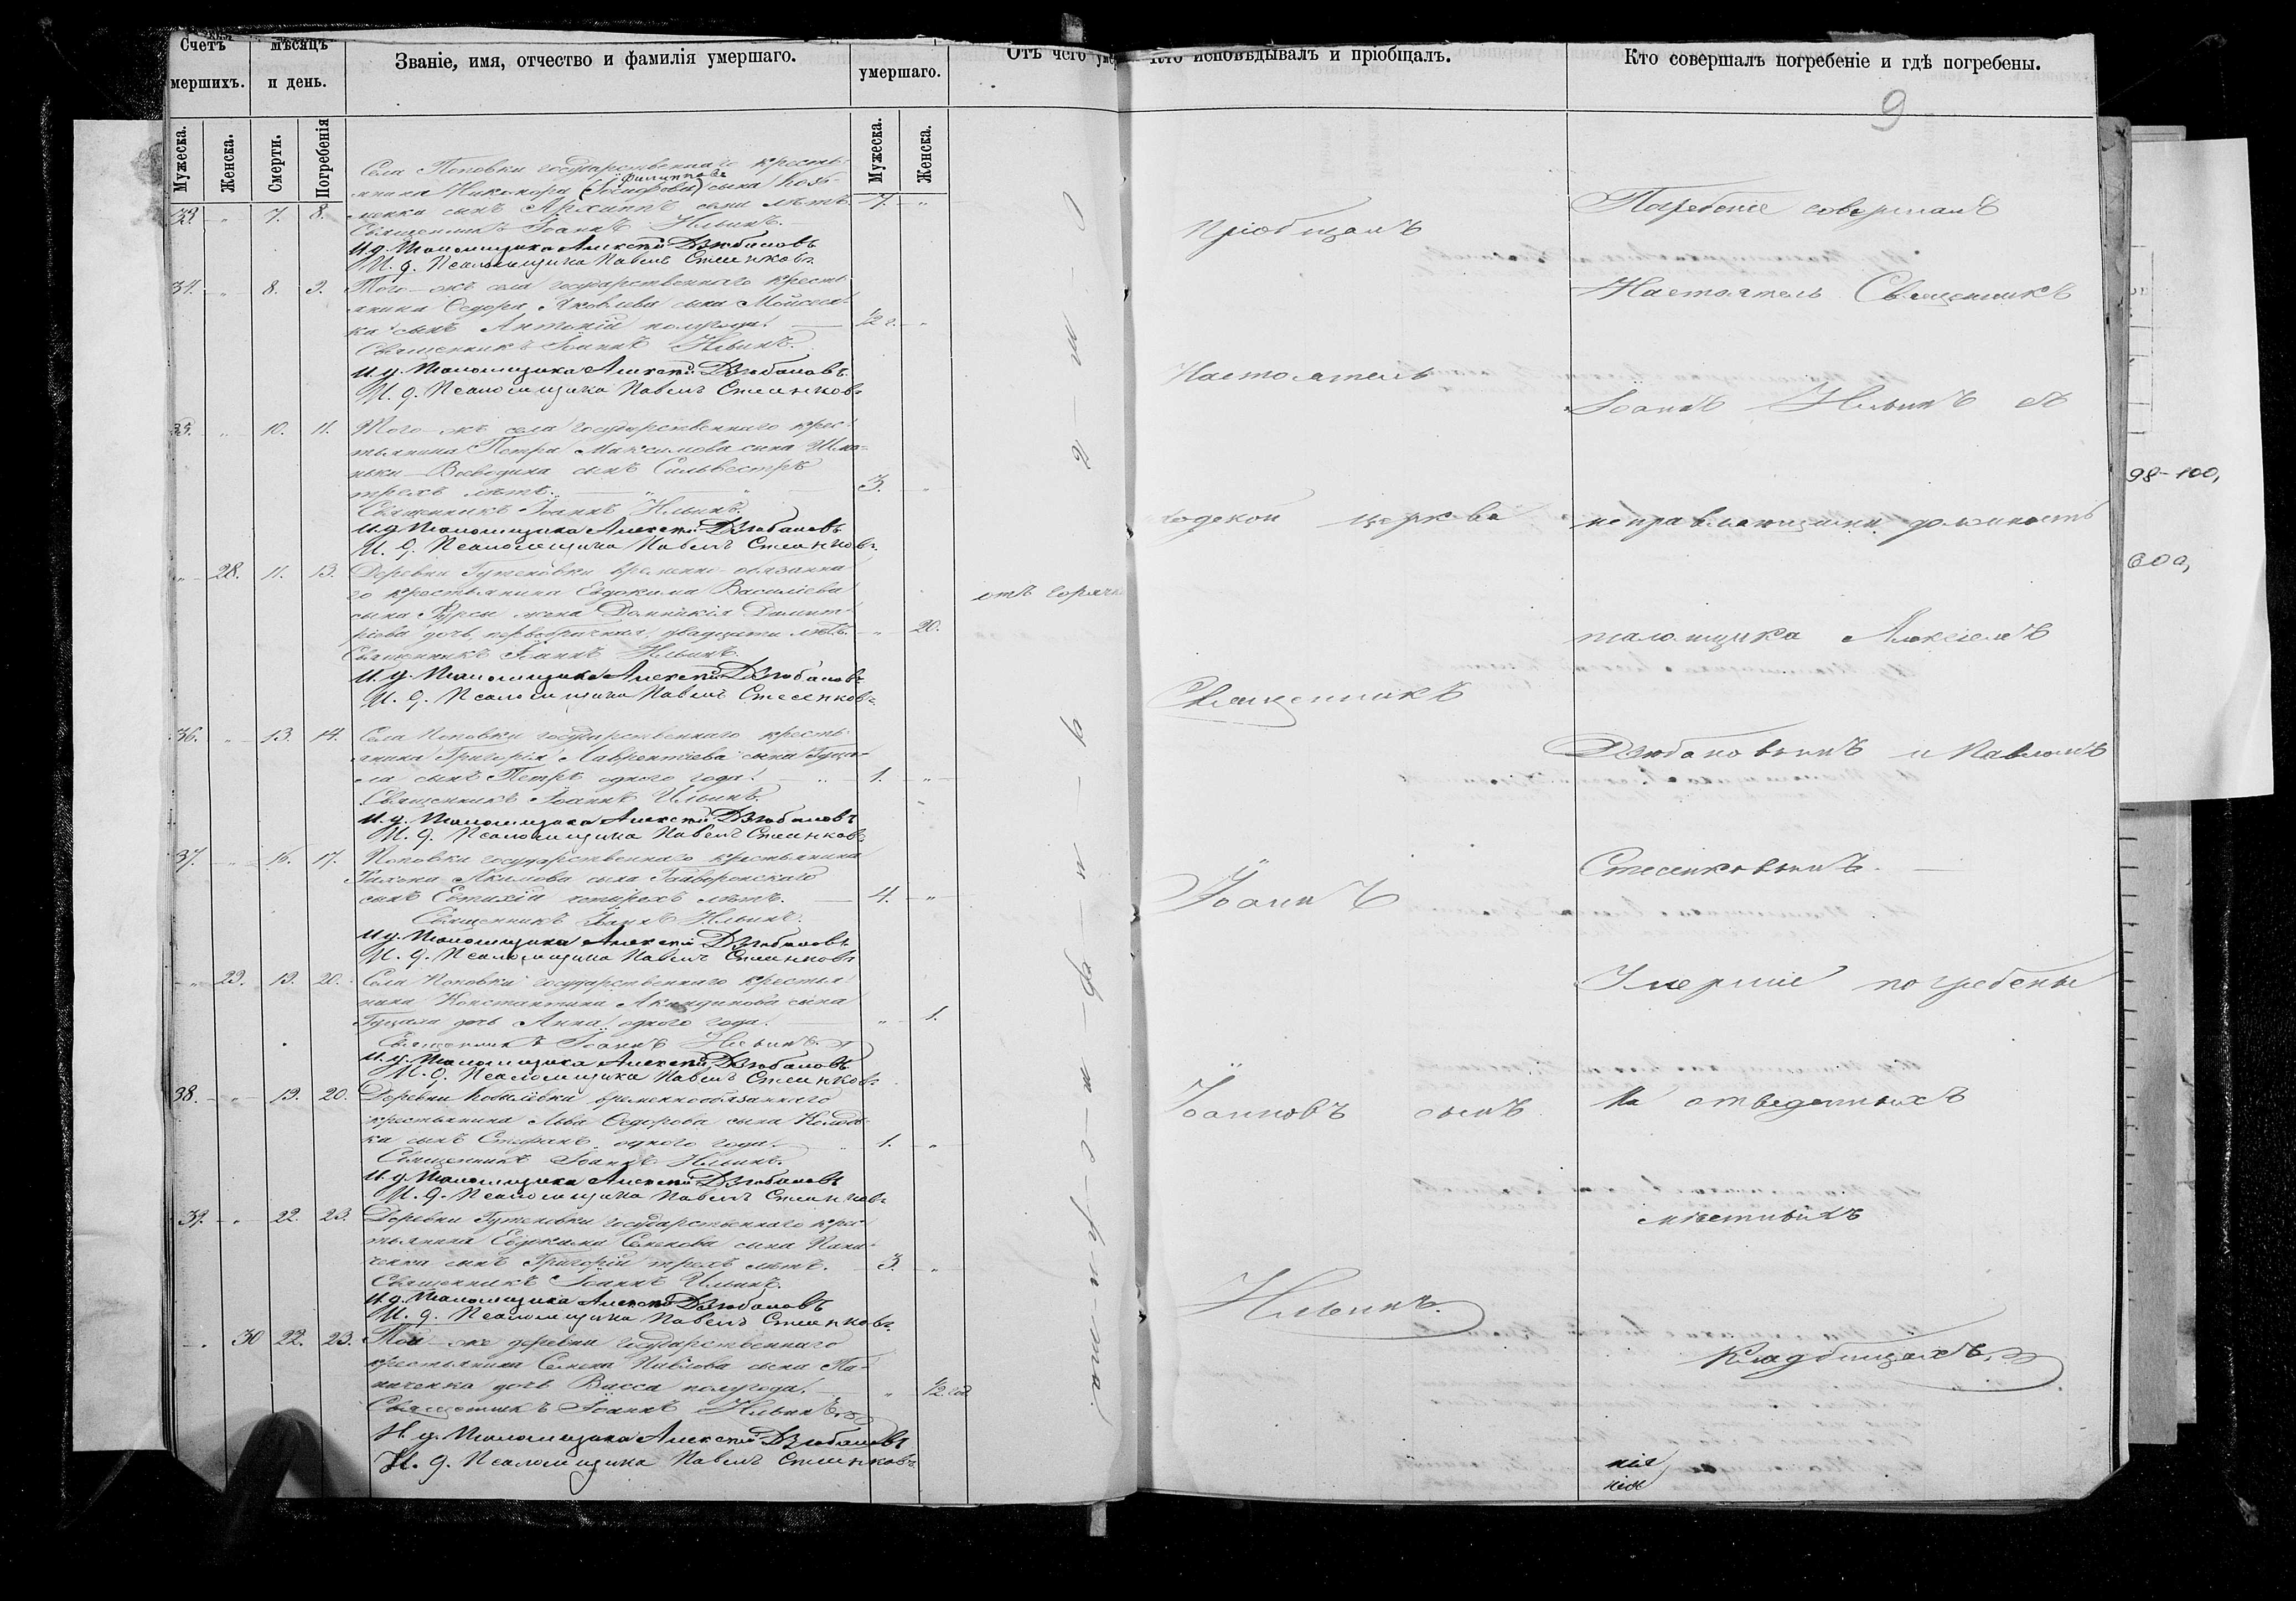 Счетъ
мершихъ.
мѣсяцъ
и день.
Званіе, имя, отчество и фамилія умершаго.
умершаго.
Отъ чего
исповѣдывалъ и пріобщалъ.
Кто совершалъ погребеніе и гдѣ погребены.
9
Мужеска.
Женска.
Смерти.
Погребенія
Мужеска.
Женска.
Села Поповки государственнаго кресть-
Филиппова
янина Никанора сына
33. " 7. 8. сынъ Архиппъ семи лѣтъ. 7. "
Священникъ Іоаннъ Ильинъ.
И. д. Псаломщика Алексѣй Дзюбановъ
И. д. Псаломщика Павелъ Стесенковъ
34. " 8. 9. Того-жъ села государственнаго кресть-
янина Ѳедора Яковлева сына Мойсеен-
ка сынъ Антоній полугода. 1/2 г. "
Священникъ Іоаннъ Ильинъ.
И. д. Псаломщика Алексѣй Дзюбановъ
И. д. Псаломщика Павелъ Стесенковъ
35. " 10. 11. Того-жъ села государственнаго крес-
тьянина Петра Максимова сына
Воеводина сынъ Сильвестръ
трехъ лѣтъ. 3. "
Священникъ Іоаннъ Ильинъ.
И. д. Псаломщика Алексѣй Дзюбановъ
И. д. Псаломщика Павелъ Стесенковъ
" 28. 11. 13. Деревни Гутековки временно-обязанна-
го крестьянина Евдокима Василіева
сына жена Домникія Димит-
ріева дочь, первобрачная, двадцати лѣтъ. " 20.
отъ горячк
Священникъ Іоаннъ Ильинъ.
И. д. Псаломщика Алексѣй Дзюбановъ
И. д. Псаломщика Павелъ Стесенковъ
36. " 13. 14. Села Поповки государственнаго кресть-
янина Григорія Лаврентіева сына Гуца-
ла сынъ Петръ одного года. 1. "
Священникъ Іоаннъ Ильинъ.
И. д. Псаломщика Алексѣй Дзюбановъ
И. д. Псаломщика Павелъ Стесенковъ
37. " 16. 17. Поповки государственнаго крестьянина
Тихона Акимова сына Гайворонскаго
сынъ Евтихій четырехъ лѣтъ. 4. "
Священникъ Іоаннъ Ильинъ.
И. д. Псаломщика Алексѣй Дзюбановъ
И. д. Псаломщика Павелъ Стесенковъ
" 29. 19. 20. Села Поповки государственнаго крестья-
нина Константина Акиндинова сына
Гуцала дочь Анна одного года. " 1.
Священникъ Іоаннъ Ильинъ.
И. д. Псаломщика Алексѣй Дзюбановъ
И. д. Псаломщика Павелъ Стесенковъ
38. " 19. 20. Деревни Кобылевки временнообязаннаго
крестьянина Льва Ѳедорова сына Колод-
ка сынъ Стефанъ одного года. 1. "
Священникъ Іоаннъ Ильинъ.
И. д. Псаломщика Алексѣй Дзюбановъ
И. д. Псаломщика Павелъ Стесенковъ
39. " 22. 23. Деревни Гутековки государственнаго крес-
тьянина Евдокима Семенова сына Пана-
ченка сынъ Григорій трехъ лѣтъ. 3. "
Священникъ Іоаннъ Ильинъ.
И. д. Псаломщика Алексѣй Дзюбановъ
И. д. Псаломщика Павелъ Стесенковъ
" 30 22. 23. Той-же деревни государственнаго
крестьянина Семена Павлова сына Па-
наченка дочь Васса полугода. " 1/2 год.
Священникъ Іоаннъ Ильинъ.
И. д. Псаломщика Алексѣй Дзюбановъ
И. д. Псаломщика Павелъ Стесенковъ
Пріобщалъ
Настоятель
церкви
Священникъ
Іоаннъ
Іоанновъ сынъ
Ильинъ.
Погребеніе совершалъ
Настоятель Священникъ
Іоаннъ Ильинъ съ
исправляющими должность
псаломщика Алексѣемъ
Дзюбановымъ и Павломъ
Стесенковымъ.
Умершіе погребены
на отведенныхъ
мѣстныхъ
Кладбищахъ.
98-100,